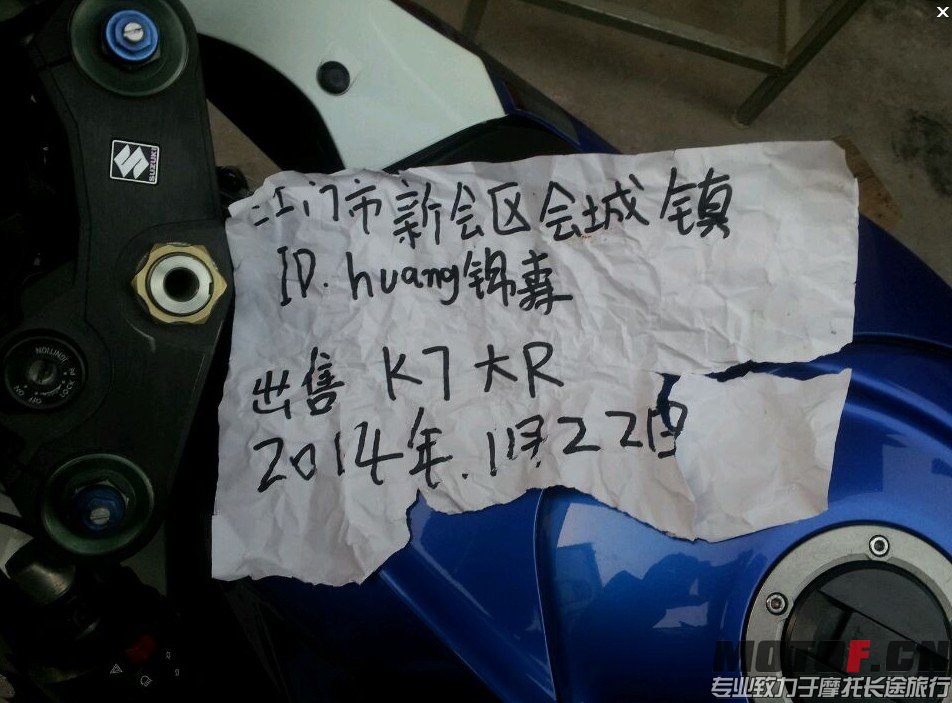 SUZUKI
江门市新会区会城镇
ID. huang锦森
出售 K7大R
2014年.1月.22日
IGNITION
MOTOF.CN
专业致力于摩托长途旅行